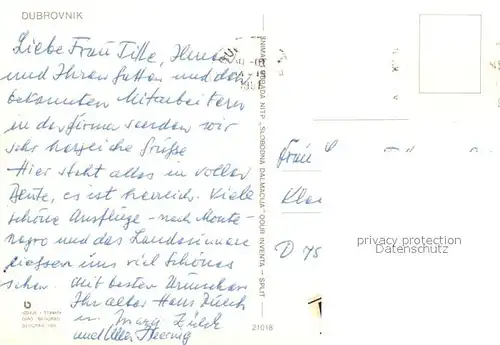 DUBROVNIK
Liebe Frau Tille, Ihnen
und Ihrem Gatten und den
bekannten Mitarbeitern
in der Firma senden wir
sehr herzliche Grüße
Hier steht alles in voller
Blüte, es ist herrlich. Viele
schöne Ausflüge – nach Monte-
negro und das Landesinnere
liessen uns viel Schönes
sehen. Mit besten Wünschen
Ihr altes Haus
u.
und
21018
SNIMANJE I IZRADA NITP „SLOBODNA DALMACIJA" OOUR INVENTA — SPLIT
Frau
D 75
privacy protection
Datenschutz